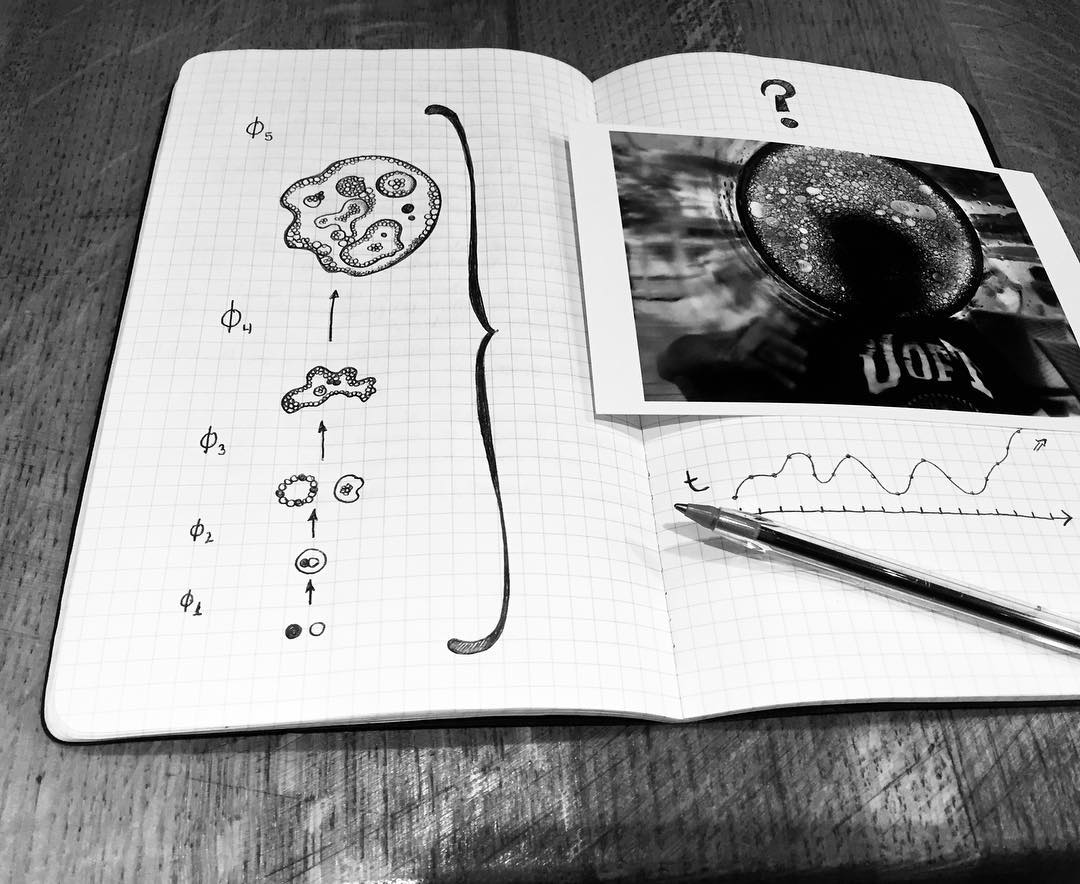 ϕ5
ϕ4
ϕ3
ϕ2
ϕ1
?
UOFT
t